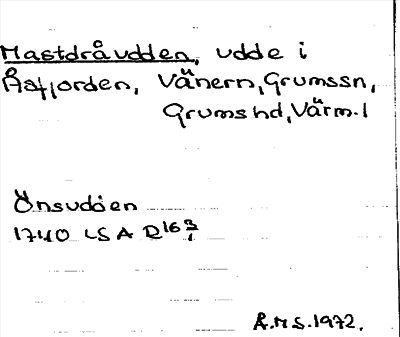 Mastdråudden, udde i
Åsfjorden, Vänern, Grumssn,
Grumshd, Värm.l
Önsudden
1740 LSA R16 3/1
Å.M S. 1972.